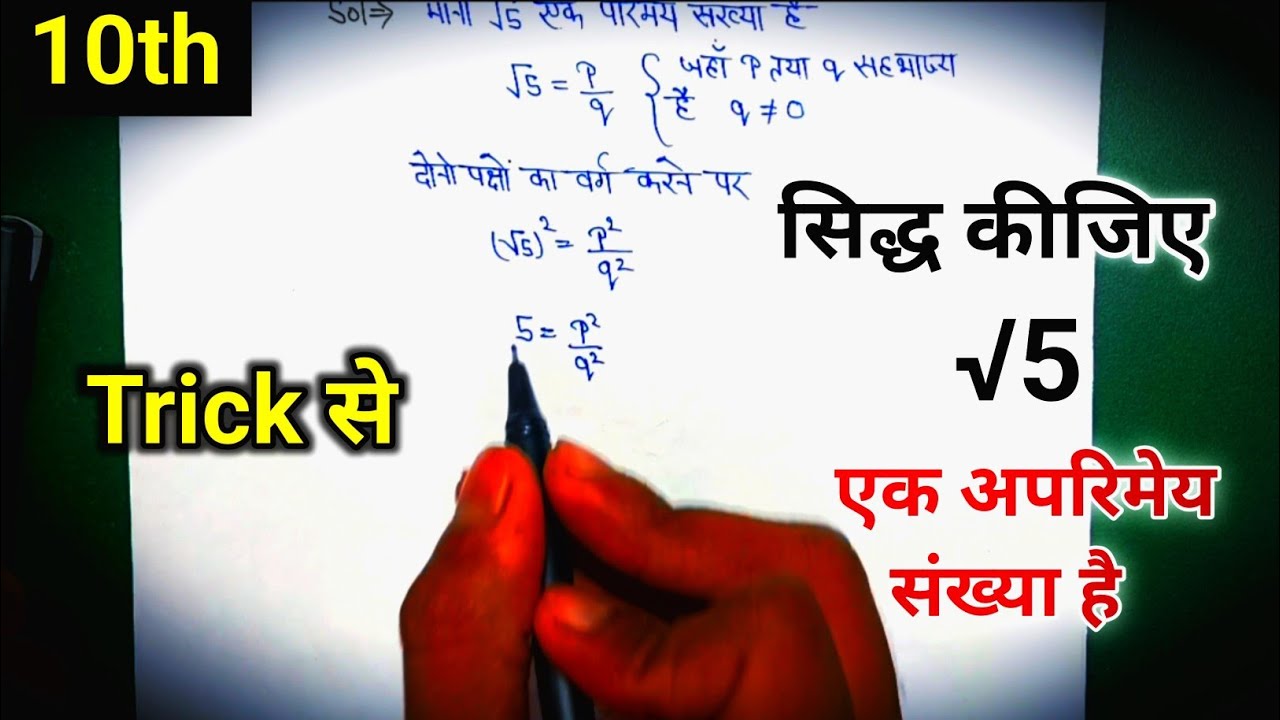 10th
Sol⇒ माना √5 एक परिमेय संख्या है
√5 = p/q { जहाँ p तथा q सहभाज्य
है q ≠ 0
दोनो पक्षों का वर्ग करने पर
(√5)² = p²/q²
5 = p²/q²
Trick से
सिद्ध कीजिए
√5
एक अपरिमेय
संख्या है